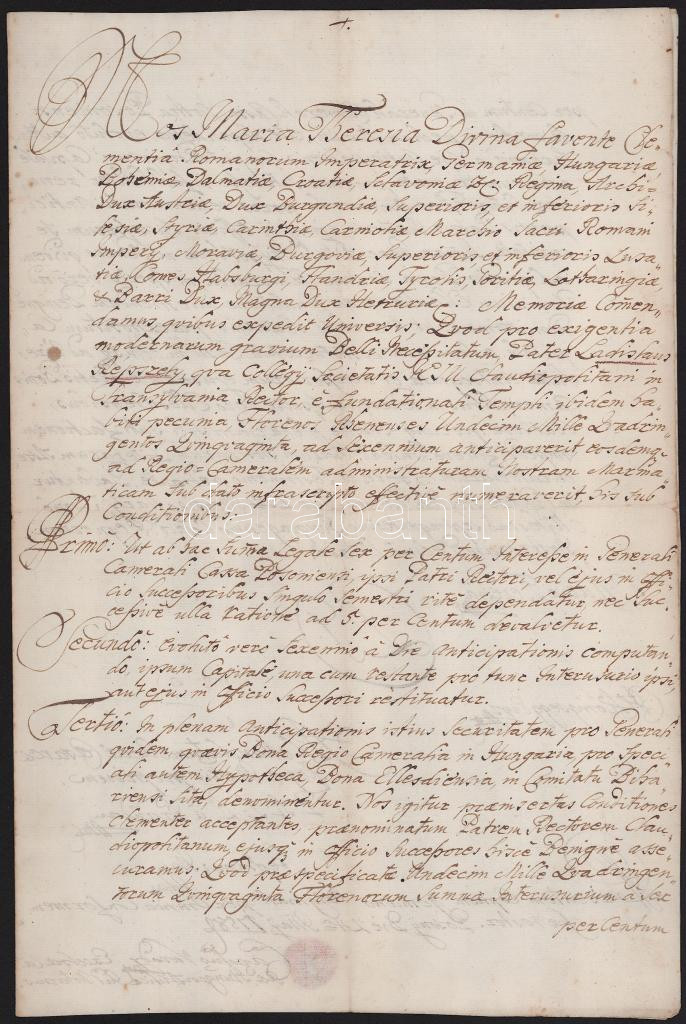 +.
Nos Maria Theresia Divina favente Cle-
mentiâ Romanorum Imperatrix, Germaniæ, Hungariæ
Bohemiæ, Dalmatiæ, Croatiæ, Sclavoniæ &c. Regina, Archi-
Dux Austriæ, Dux Burgundiæ, Superioris, et inferioris Si-
lesiæ, Styriæ, Carinthiæ, Carnioliæ Marchio Sacri Romani
Impery, Moraviæ, Burgoviæ, Superioris et inferioris Lusa-
tiæ, Comes Habsburgi, Flandriæ, Tyrolis, Goritiæ, Lotharingiæ,
& Barri Dux, Magna Dux Hetruriæ: Memoriæ Com̄en-
damus, quibus expedit Universis: Qvod pro exigentia
modernarum gravium Belli Necessitatum, Pater Ladislaus
Repszely, qva Collegy Societatis JESU Claudiopolitani in
Transylvania Rector, è fundationali Templi ibidem ha-
biti pecunia, Florenos Rhenenses Undecim Mille Qvadrin-
gentos Qvinqvaginta, ad Sexennium anticipaverit eosdemq
ad Regio-Cameralem administraturam Nostram Marma-
ticam sub dato infrascripto effectivè numeraverit, his sub
Conditionibus:
darabanth
Primò: Ut ab hac Sum̄a Legale Sex per Centum Interesse in Generali
Camerali Cassa Posoniensi, ipsi Patri Rectori, vel ejus in Offi-
cio Successoribus singulo Semestri ritè dependatur, nec suc-
cessivè ulla ratione ad 5. per Centum devalvetur.
Secundò: Evoluto verò Sexennio à Die anticipationis computan-
do, ipsum Capitale, una cum restante pro tunc Interusurio ipsi,
aut ejus in Officio Successori restituatur.
Tertiò: In plenam Anticipationis istius Securitatem pro Generali
quidem, qvævis Bona Regio Cameralia in Hungaria, pro Speci-
ali autem Hypotheca, Bona Ellesdiensia, in Comitatu Biha-
riensi Sita, denominentur. Nos igitur præinsertas Conditiones
clementer acceptantes, prænominatum Patrem Rectorem Clau-
diopolitanum, ejusq in Officio Successores hisce Benignè asse-
curamus: Qvod præspecificatæ Undecim Mille Qvadringen-
torum Qvinqvaginta Florenorum Summæ Interusurium à Sex
per Centum